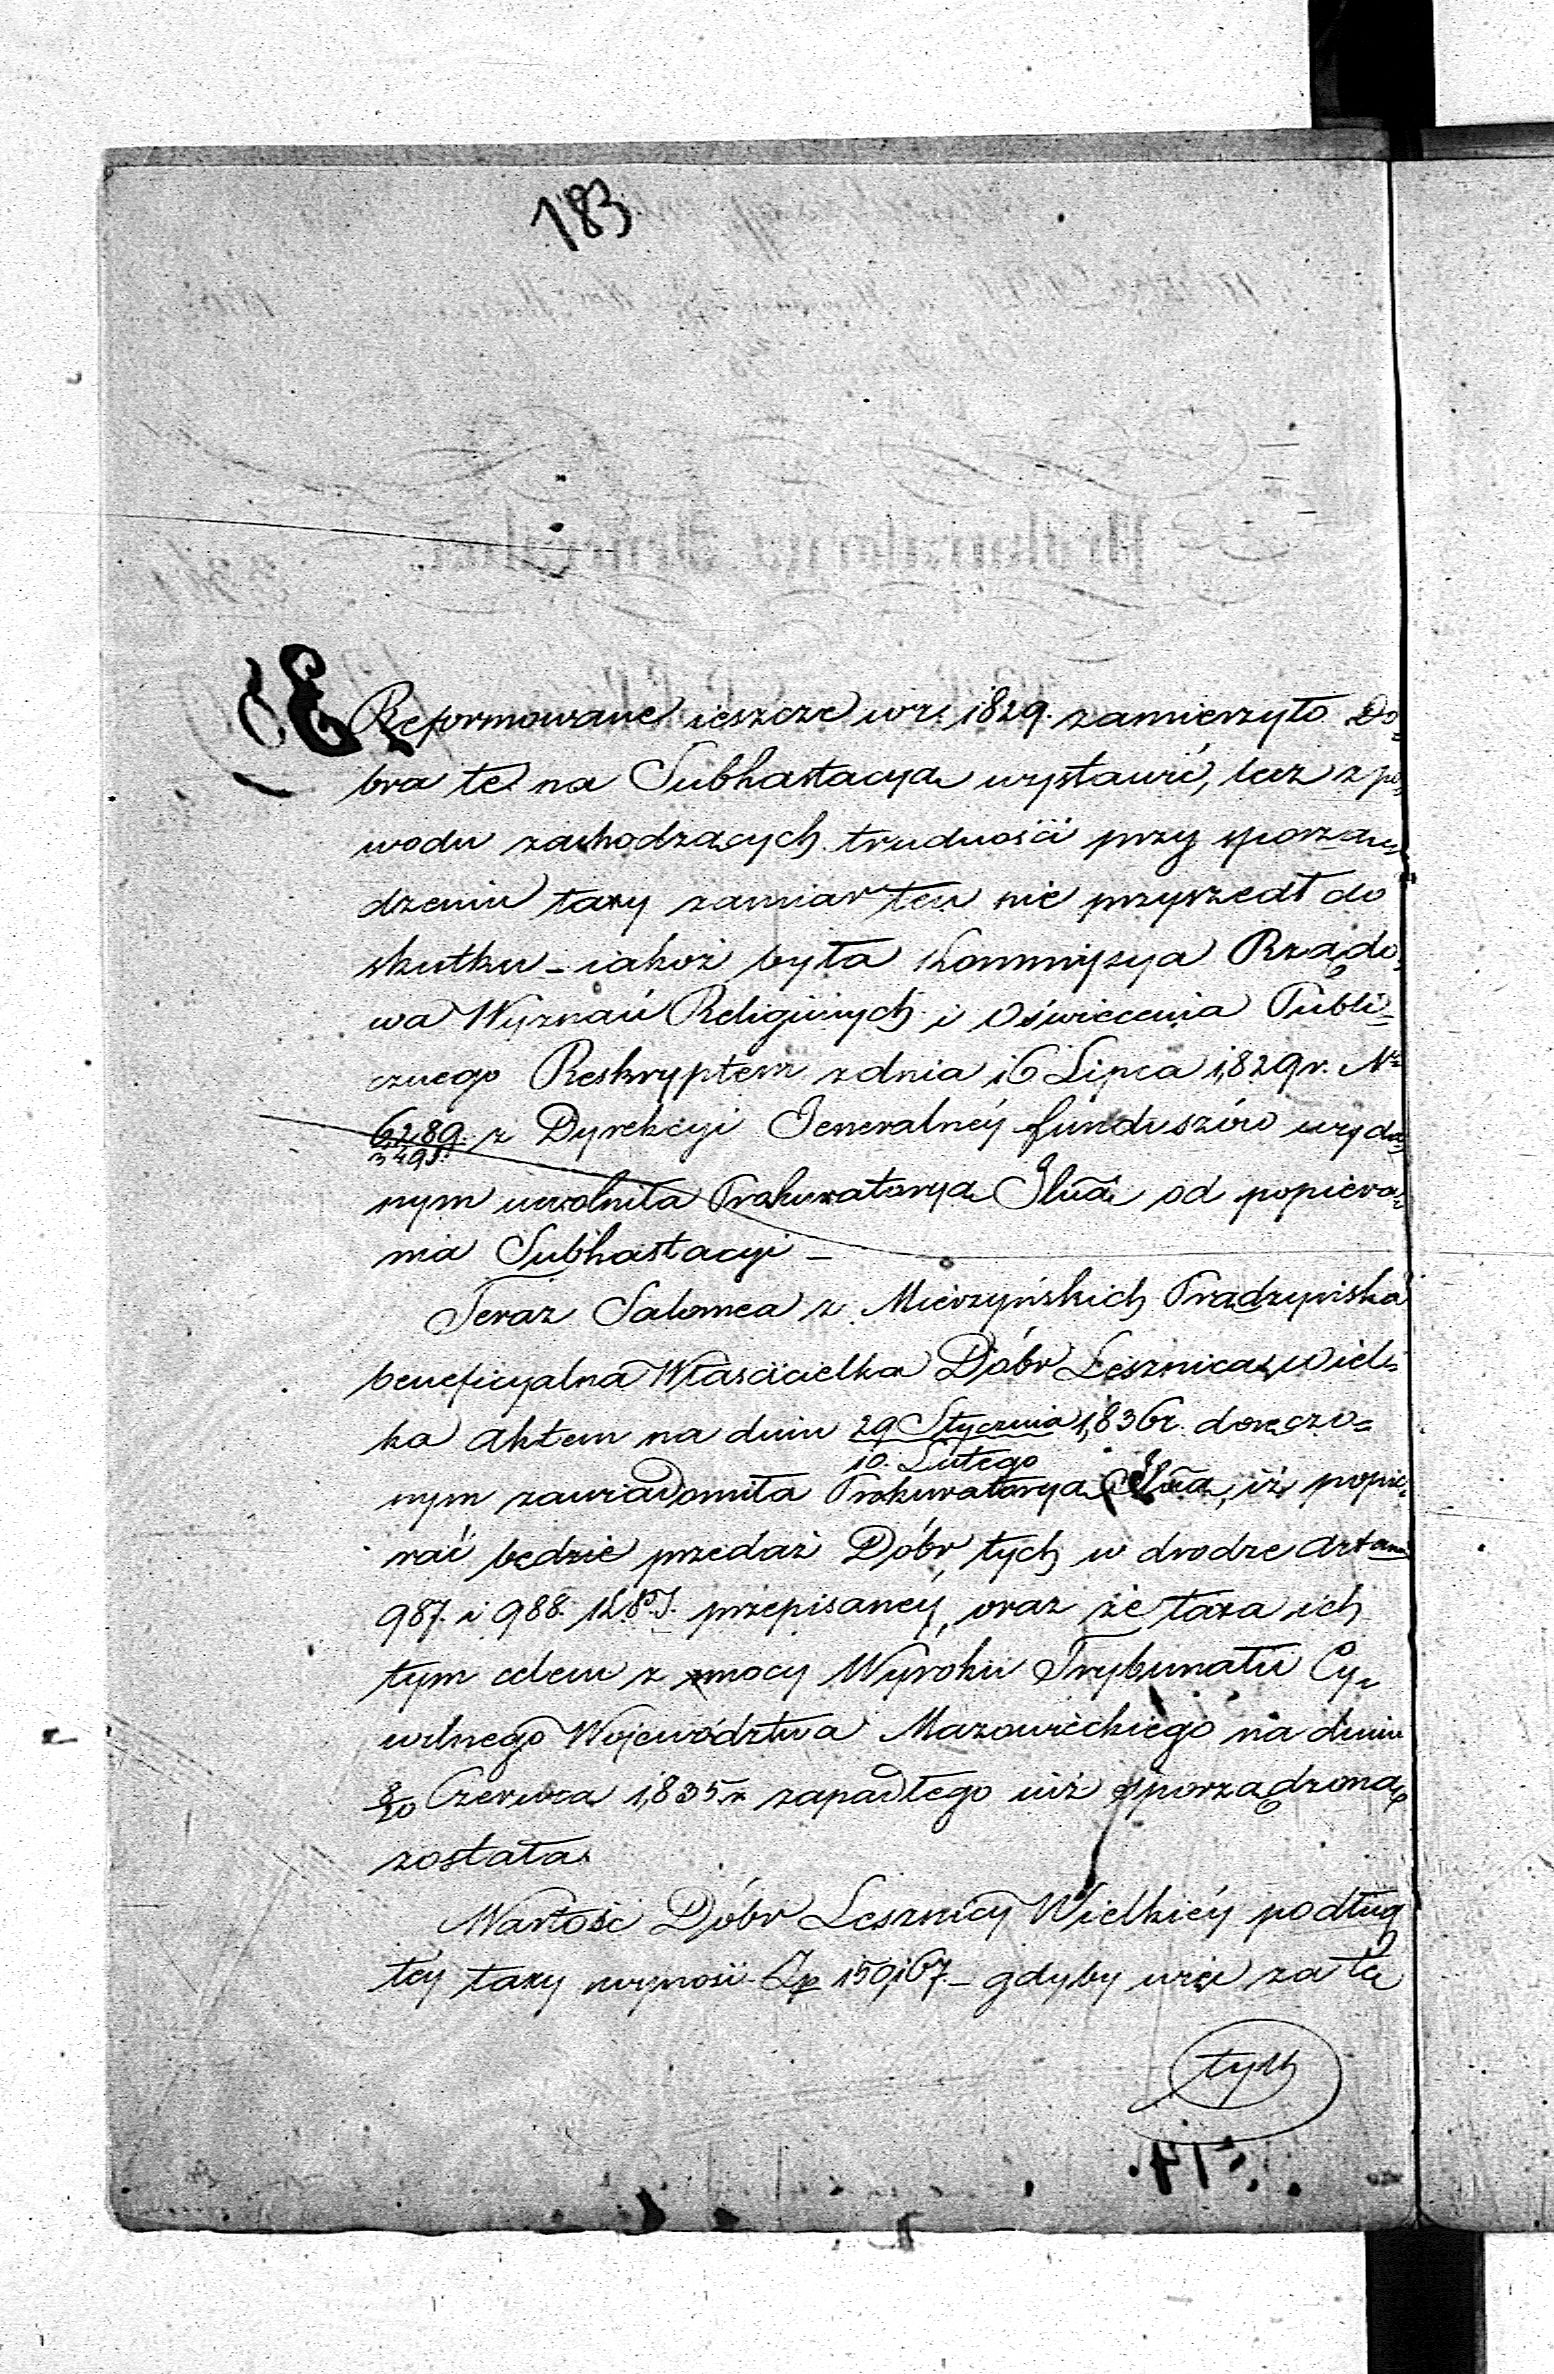 183
Reformowane ieszcze w r. 1829. zamierzyło Do=
bra te na Subhastacyą wystawić, lecz z po=
wodu zachodzących trudności przy sporzą=
dzeniu taxy zamiar ten nie przyszedł do
skutku – iakoż była Kommissya Rządo=
wa Wyznań Religijnych i Oświecenia Publi=
cznego Reskryptem z dnia 16 Lipca 1829 r. Nr
6289./3495. z Dyrekcyi Jeneralnéy funduszów wyda=
nym uwolniła Prokuratoryą Jlną od popiera=
nia Subhastacyi –
Teraz Salomea z Mierzyńskich Prądzyńska
beneficyalna Właścicielka Dóbr Lesznica Wiel=
ka aktem na dniu 29 Stycznia/10. Lutego 1836 r. doręczo=
nym zawiadomiła Prokuratoryą Jlną, iż popie=
rać będzie przedaż Dóbr tych w drodze Artami
987. i 988. K.P.S. przepisanéy, oraz że taxa ich
tym celem z mocy Wyroku Trybunału Cy=
wilnego Województwa Mazowieckiego na dniu
8/20 Czerwca 1835 r. zapadłego iuż sporządzoną
została.
Wartość Dóbr Lesznicy Wielkiéy podług
téy taxy wynosi Zp 150,167. – gdyby więc za te
tych